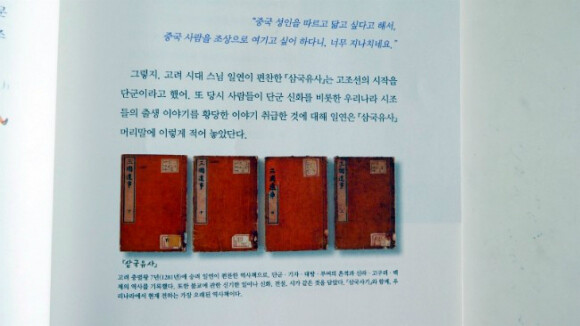 "중국 성인을 따르고 닮고 싶다고 해서,
중국 사람을 조상으로 여기고 싶어 하다니, 너무 지나치네요."
그렇지. 고려 시대 스님 일연이 편찬한 『삼국유사』는 고조선의 시작을
단군이라고 했어. 또 당시 사람들이 단군 신화를 비롯한 우리나라 시조
들의 출생 이야기를 황당한 이야기 취급한 것에 대해 일연은 『삼국유사』
머리말에 이렇게 적어 놓았단다.
三國遺事
三國遺事
三國遺事
三國遺事
『삼국유사』
고려 충렬왕 7년(1281년)에 승려 일연이 편찬한 역사책으로, 단군·기자·대방·부여의 흔적과 신라·고구려·백
제의 역사를 기록했다. 또한 불교에 관한 신기한 일이나 신화, 전설, 시가 같은 것을 담았다. 『삼국사기』와 함께, 우
리나라에서 현재 전하는 가장 오래된 역사책이다.